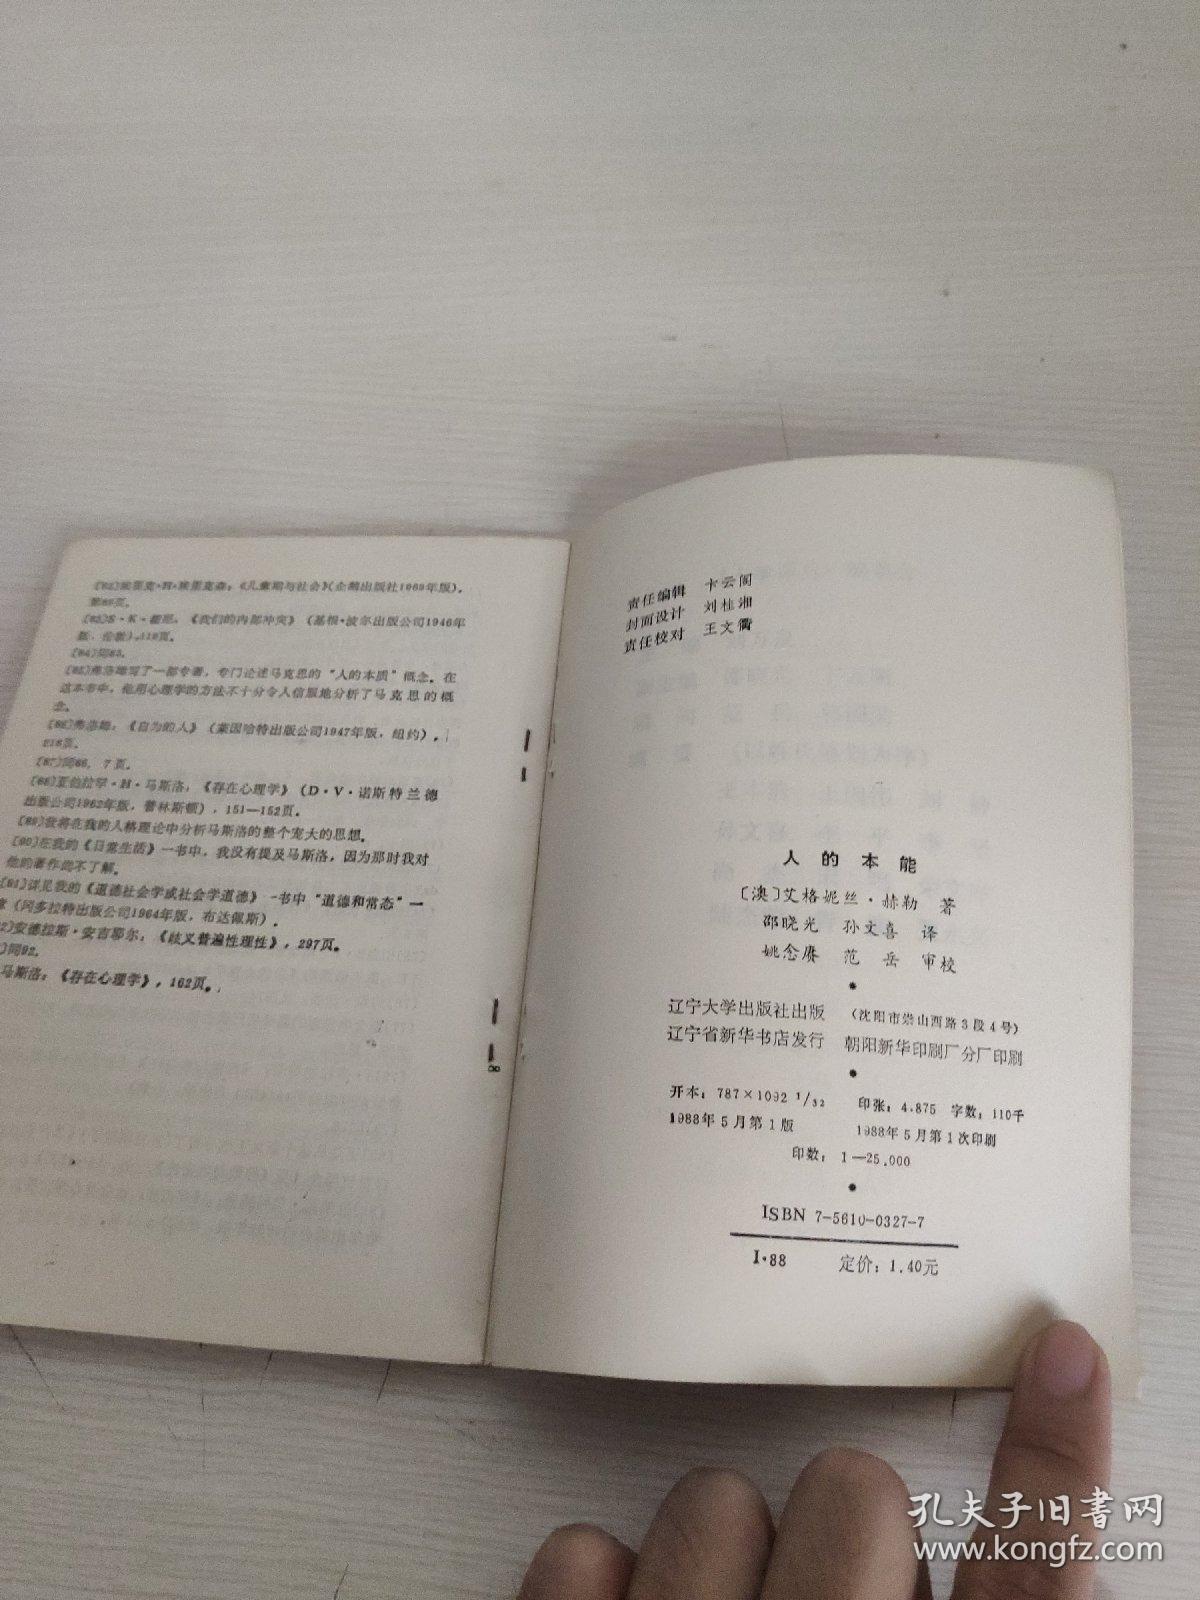 第89页。
〔84〕同83。
〔85〕弗洛姆写了一部专著，专门论述马克思的“人的本质”概念。在
这本书中，他用心理学的方法不十分令人信服地分析了马克思的概
念。
〔86〕弗洛姆：《自为的人》（莱因哈特出版公司1947年版，纽约），
218页。
〔87〕同86，7页。
〔88〕亚伯拉罕·H·马斯洛：《存在心理学》（D·V·诺斯特兰德
出版公司1962年版，普林斯顿），151—152页。
〔89〕我将在我的人格理论中分析马斯洛的整个宠大的思想。
〔90〕在我的《日常生活》一书中，我没有提及马斯洛，因为那时我对
他的著作尚不了解。
〔91〕详见我的《道德社会学或社会学道德》一书中“道德和常态”一
章（冈多拉特出版公司1964年版，布达佩斯）。
2〕安德拉斯·安吉耶尔：《歧义普遍性理性》，297页。
〕同92。
马斯洛：《存在心理学》，162页。
责任编辑 卞云阁
封面设计 刘桂湘
责任校对 王文霱
人的本能
〔澳〕艾格妮丝·赫勒 著
邵晓光 孙文喜 译
姚念赓 范岳 审校
辽宁大学出版社出版 （沈阳市崇山西路3段4号）
辽宁省新华书店发行 朝阳新华印刷厂分厂印刷
开本：787×1092 1/32 印张：4.875 字数：110千
1988年5月第1版 1988年5月第1次印刷
印数：1—25.000
ISBN 7-5610-0327-7
I·88 定价：1.40元
孔夫子旧书网
www.kongfz.com